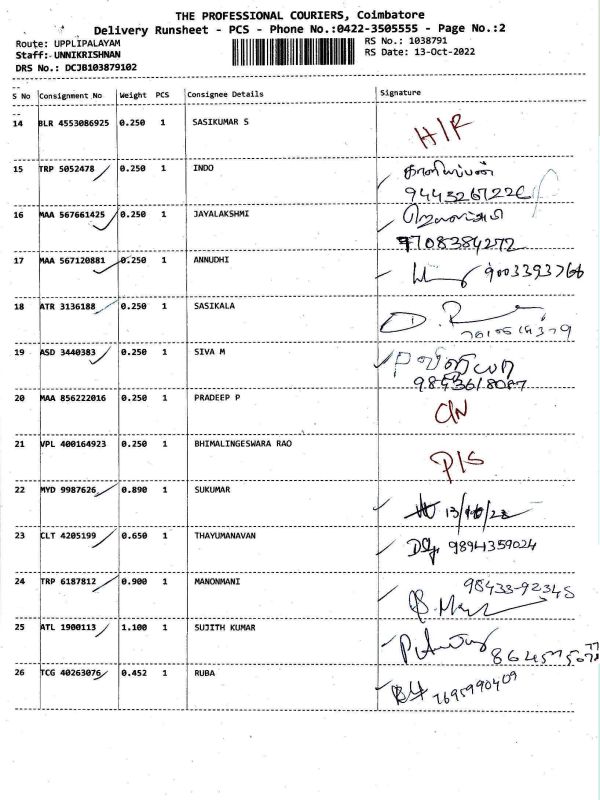 THE PROFESSIONAL COURIERS, Coimbatore
Delivery Runsheet - PCS - Phone No.:0422-3505555 - Page No.:2
Route: UPPLIPALAYAM RS No.: 1038791
Staff: UNNIKRISHNAN RS Date: 13-Oct-2022
DRS No.: DCJB103879102
S No Consignment No Weight PCS Consignee Details Signature
14 BLR 4553086925 0.250 1 SASIKUMAR S
15 TRP 5052478 0.250 1 INDO
காளியப்பன்
16 MAA 567661425 0.250 1 JAYALAKSHMI
ஜெயலட்சுமி
7708384272
17 MAA 567120881 0.250 1 ANNUDHI 9003393766
18 ATR 3136188 0.250 1 SASIKALA
19 ASD 3440383 0.250 1 SIVA M
9843618087
20 MAA 856222016 0.250 1 PRADEEP P
21 VPL 400164923 0.250 1 BHIMALINGESWARA RAO
P/S
22 MYD 9987626 0.890 1 SUKUMAR
23 CLT 4205199 0.650 1 THAYUMANAVAN 9894359024
24 TRP 6187812 0.900 1 MANONMANI 98433-92345
25 ATL 1900113 1.100 1 SUJITH KUMAR
26 TCG 40263076 0.452 1 RUBA 7695990409